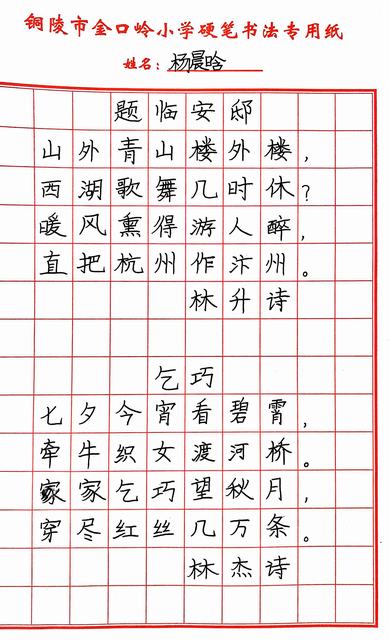 铜陵市金口岭小学硬笔书法专用纸
姓名：杨晨晗
题临安邸
山外青山楼外楼，
西湖歌舞几时休？
暖风熏得游人醉，
直把杭州作汴州。
林升诗
乞巧
七夕今宵看碧霄，
牵牛织女渡河桥。
家家乞巧望秋月，
穿尽红丝几万条。
林杰诗